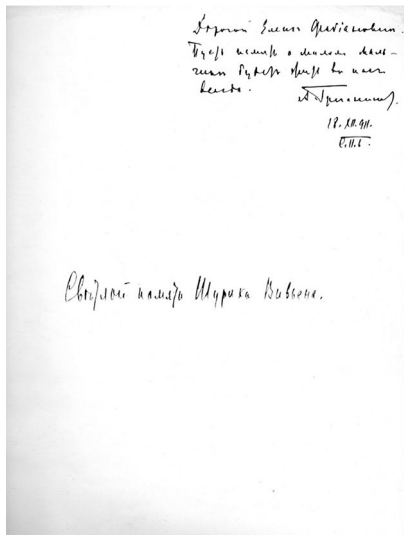 Дорогой Елене Фабиановне.
Пусть память о милом маль-
чике будет жить во всех
18.XII.91.
С.П.б.
Светлой памяти Шурика Вивьена.